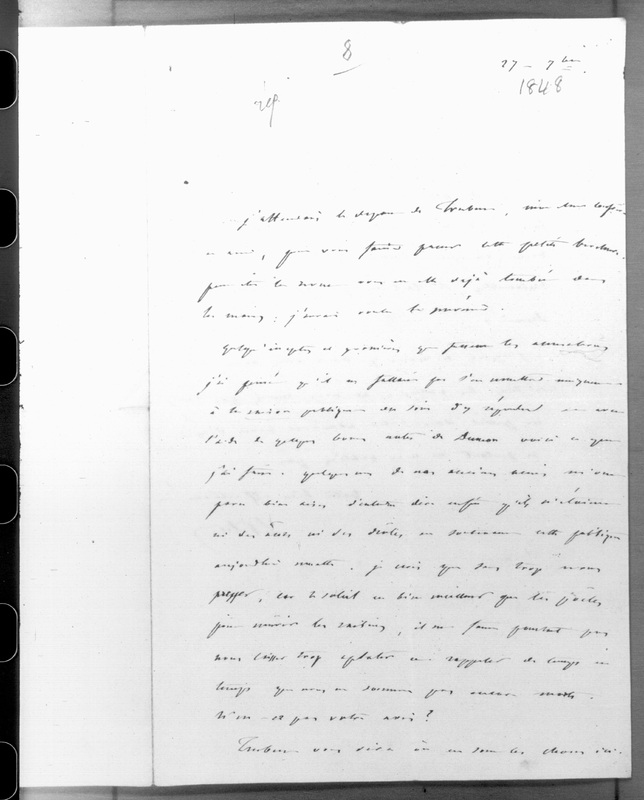 8
27 - 7bre
1848
rép
j'attendais le départ de Trubert, mon cher
ami, pour vous faire passer cette petite brochure.
peut être le vous est elle déjà tombée dans
les mains ; j'aurai voulu le prévenir.
quelqu'ineptes et grossières que fussent les accusations
j'ai pensé qu'il ne fallait pas s'en remettre uniquement
à la raison publique du soin d'y répondre
l'aide de quelques bons actes de Dumon voici ce que
j'ai fait. quelques uns de nos anciens amis m'ont
paru bien aises d'entendre dire enfin qu'ils n'étaient
ni des ânes ni des drôles en soutenant cette politique
aujourd'hui muette. je crois que sans trop nous
presser, car le soleil est bien meilleur que les
pour mûrir les raisins, il ne faut pourtant pas
nous laisser trop aplatir et rappeler de temps en
temps que nous ne sommes pas encore morts.
N'en est ce pas votre avis ?
Trubert vous dira où en sont les choses ici.